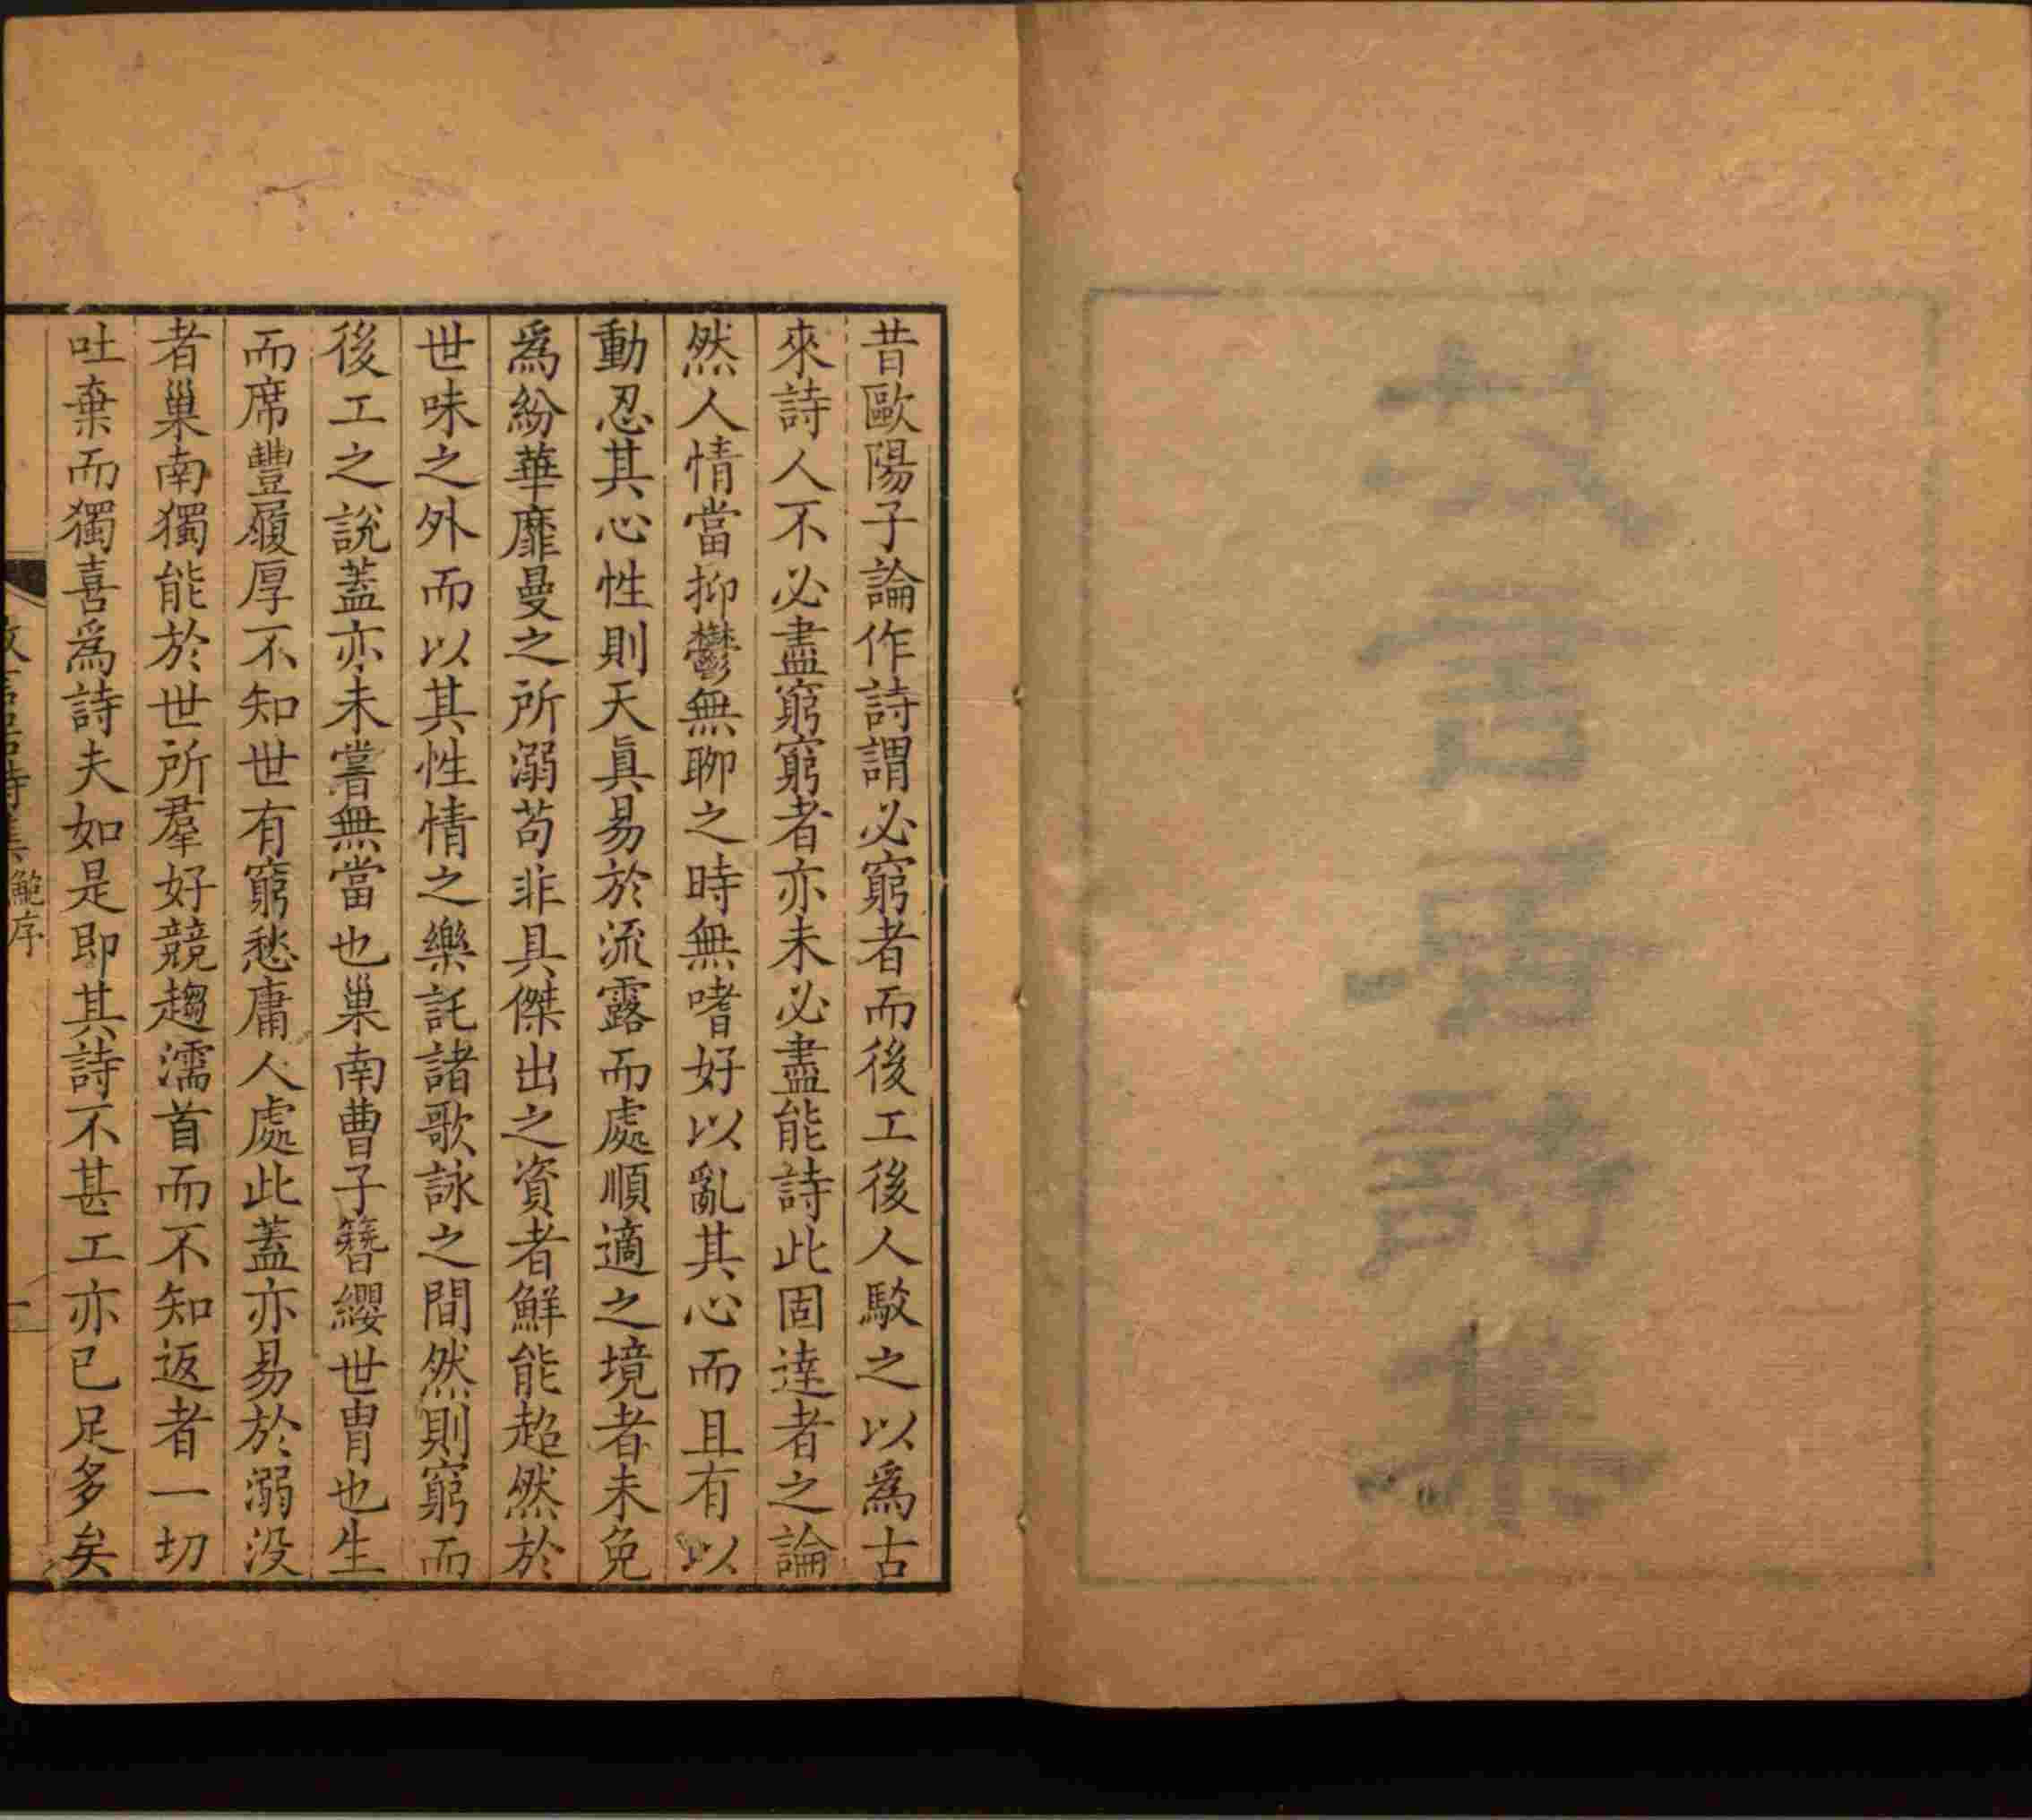 放言居詩集
昔歐陽子論作詩謂必窮者而後工後人駁之以爲古
來詩人不必盡窮窮者亦未必盡能詩此固達者之論
然人情當抑鬱無聊之時無嗜好以亂其心而且有以
動忍其心性則天眞易於流露而處順適之境者未免
爲紛華靡曼之所溺苟非具傑出之資者鮮能超然於
世味之外而以其性情之樂託諸歌詠之間然則窮而
後工之說蓋亦未嘗無當也巢南曹子簪纓世胄也生
而席豐履厚不知世有窮愁庸人處此蓋亦易於溺没
者巢南獨能於世所羣好競趨濡首而不知返者一切
吐棄而獨喜爲詩夫如是即其詩不甚工亦已足多矣
放言居詩集 序 一